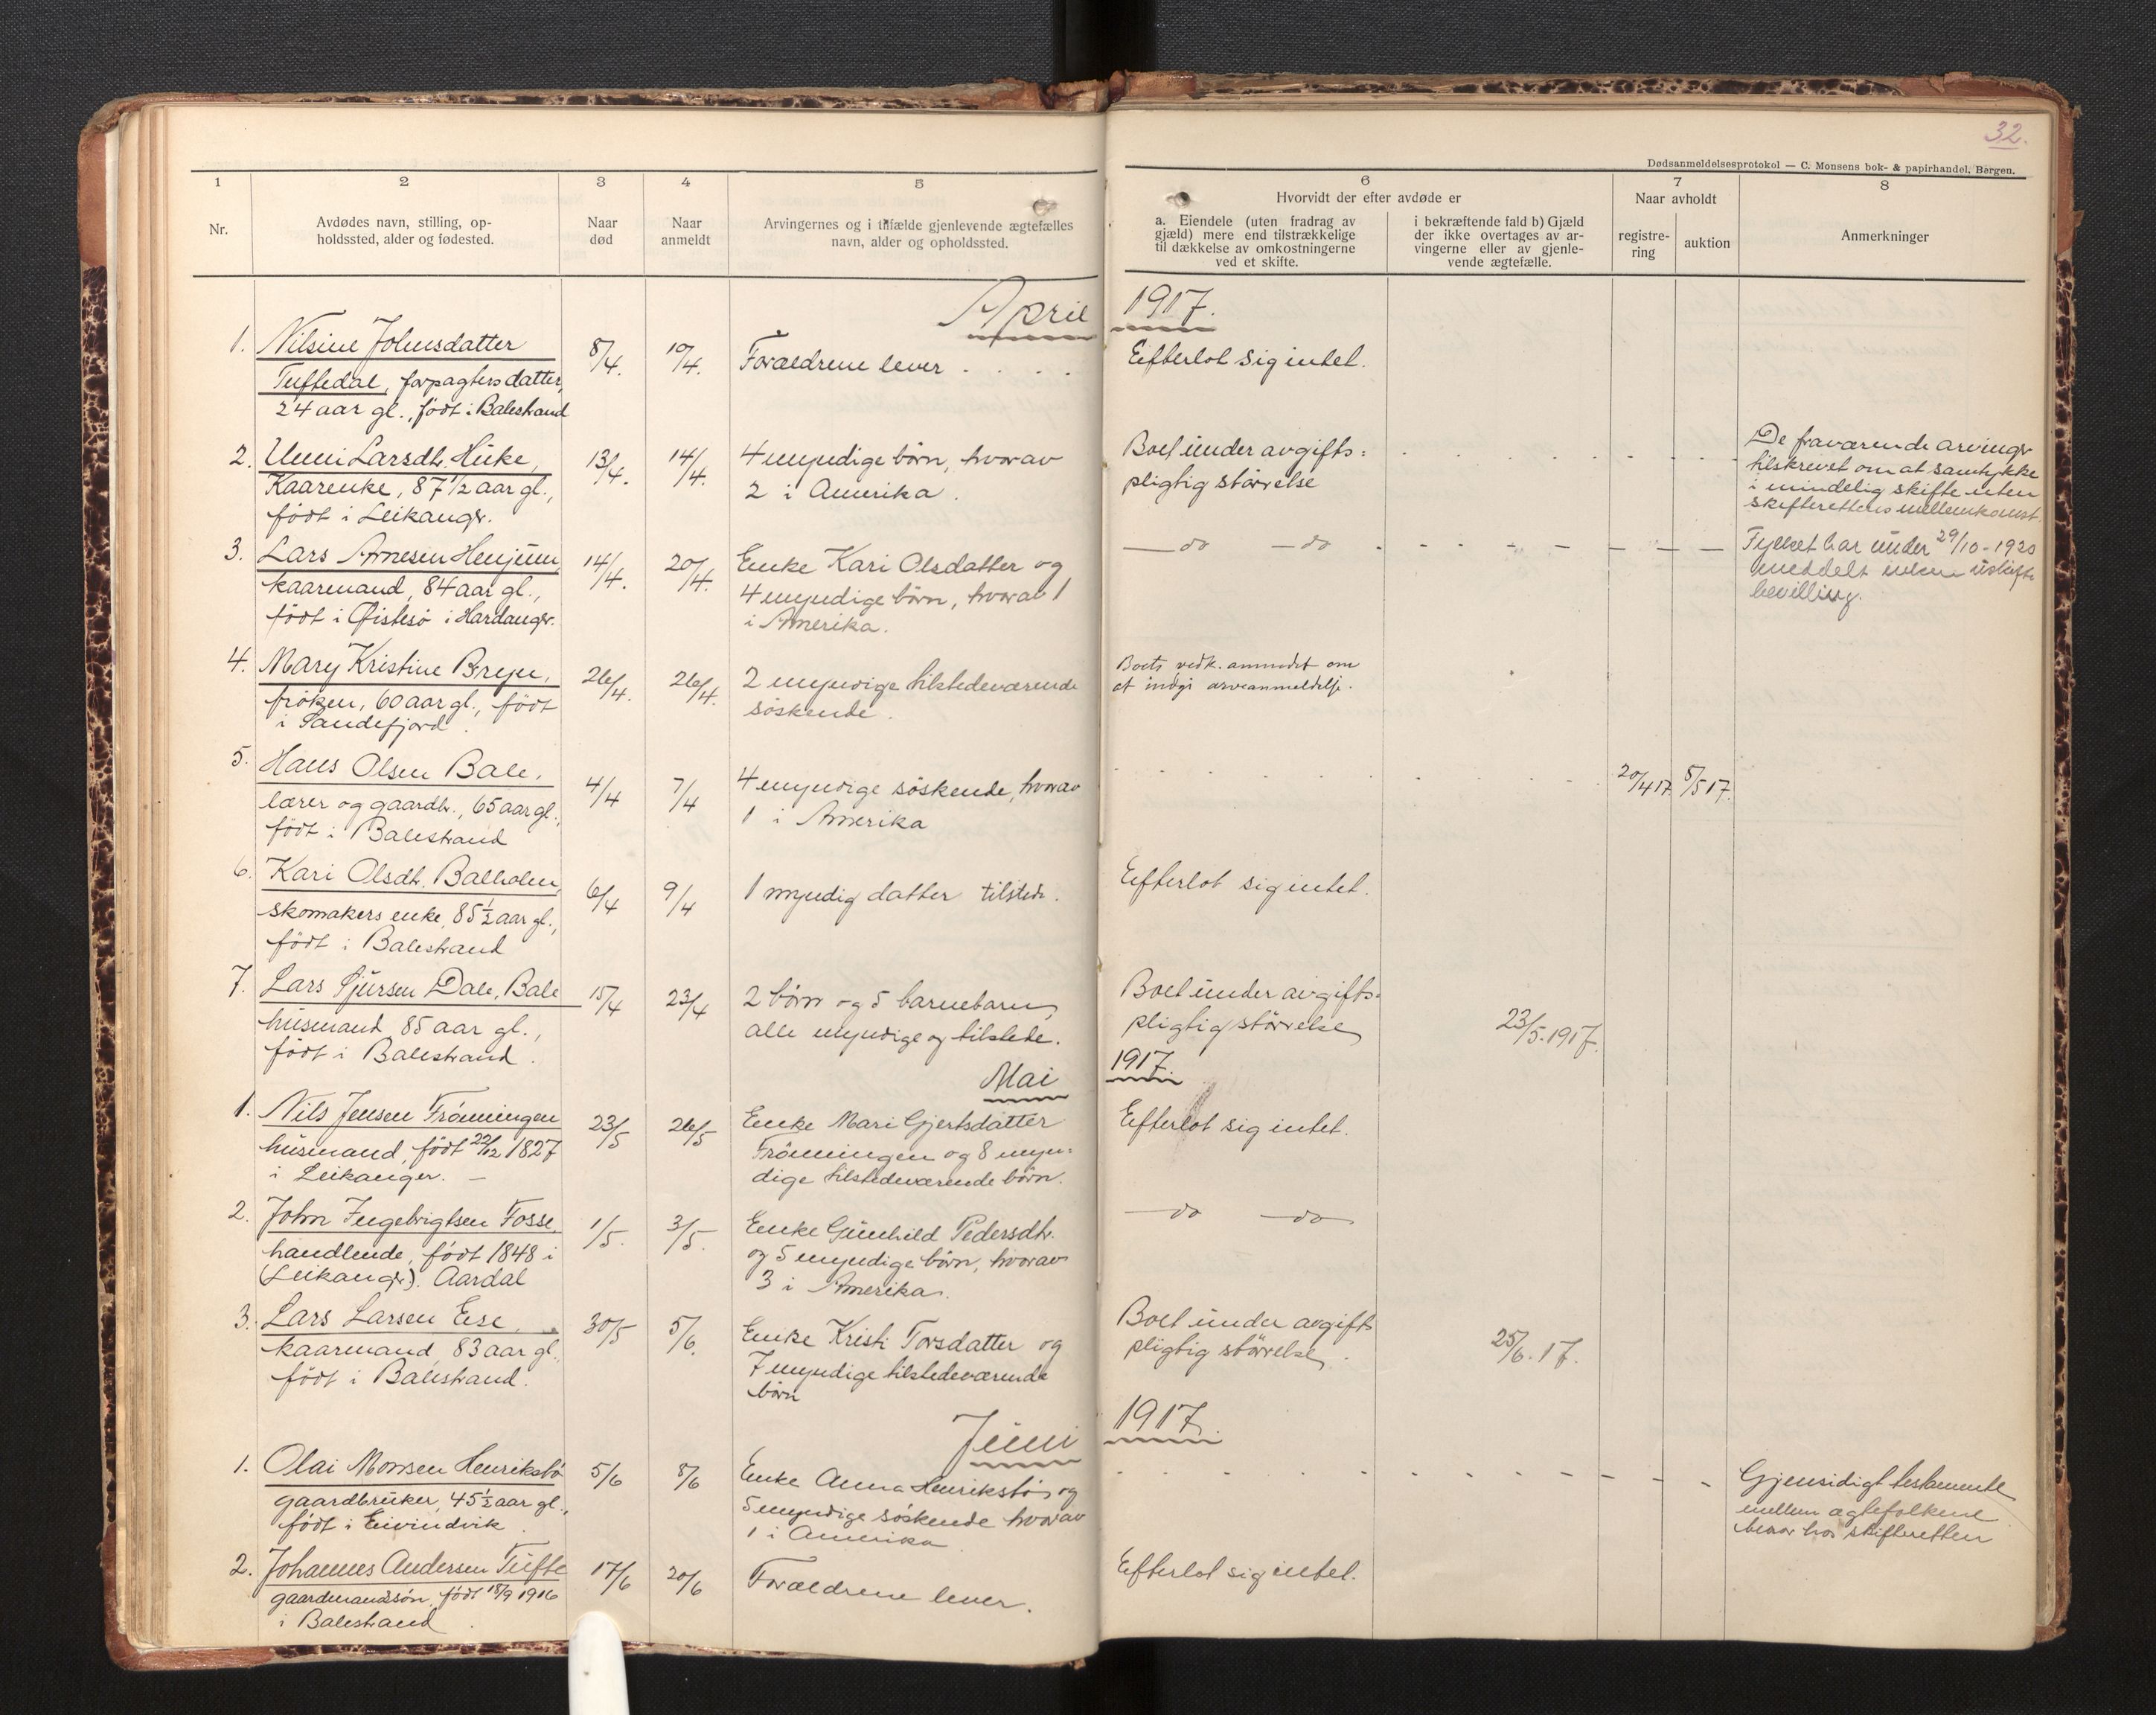 32.
Dødsanmeldelsesprotokol — C. Monsens bok- & papirhandel, Bergen.
1
Nr.
2
Avdødes navn, stilling, op-
holdssted, alder og fødested.
3
Naar
død
4
Naar
anmeldt
5
Arvingernes og i tilfælde gjenlevende ægtefælles
navn, alder og opholdssted.
6
Hvorvidt der efter avdøde er
a. Eiendele (uten fradrag av
gjæld) mere end tilstrækkelige
til dækkelse av omkostningerne
ved et skifte.
i bekræftende fald b) Gjæld
der ikke overtages av ar-
vingerne eller av gjenle-
vende ægtefælle.
7
Naar avholdt
registre-
ring
auktion
8
Anmerkninger
April 1917.
1. Nilsine Johnsdatter
Tuftedal, forpagters datter,
24 aar gl., født i Balestrand
8/4.
10/4.
Forældrene lever . . . .
Efterlot sig intet.
2. Unni Larsdtr. Huke,
Kaarenke, 87 1/2 aar gl.,
født i Leikangr.
13/4.
14/4.
4 myndige børn, hvorav
2 i Amerika.
Boet under avgifts=
pligtig størrelse
De fraværende arvingr
tilskrevet om at samtykke
i mindelig skifte uten
skifterettens mellemkomst
3. Lars Arnesen Henjum,
kaarmand, 84 aar gl.,
født i Øistesø i Hardangr.
14/4.
20/4.
Enke Kari Olsdatter og
4 myndige børn, hvorav 1
i Amerika.
— do — do
Fylket har under 29/10-1920
meddelt enken uskifte
bevilling.
4. Mary Kristine Breje,
frøken, 60 aar gl., født
i Sandefjord.
26/4.
26/4.
2 myndige tilstedeværende
søskende.
Boets vedk. anmodet om
at indgi arveanmeldelse.
5. Hans Olsen Bale,
lærer og gaardbr., 65 aar gl.,
født i Balestrand
4/4
7/4
4 myndige søskende, hvorav
1 i Amerika
20/4 17.
5/5 17.
6. Kari Olsdtr. Balholm,
skomakers enke, 85 1/2 aar gl.,
født i Balestrand
6/4
9/4
1 myndig datter tilstede.
Efterlot sig intet.
7. Lars Sjursen Dale, Bale
husmand, 85 aar gl.,
født i Balestrand.
15/4
23/4
2 børn og 5 barnebarn,
alle myndige og tilstede.
Boet under avgifts=
pligtig størrelse
23/5.1917.
Mai 1917.
1. Nils Jensen Frønningen
husmand, født 22/12 1827
i Leikanger. —
23/5
26/5
Enke Mari Gjertsdatter
Frønningen og 8 myn=
dige tilstedeværende børn.
Efterlot sig intet.
2. John Ingebrigtsen Fosse,
handlende, født 1848 i
(Leikangr). Aardal
1/5.
3/5.
Enke Gunhild Pedersdtr.
og 5 myndige børn, hvorav
3 i Amerika.
— do — do —
3. Lars Larsen Ese,
kaarmand, 83 aar gl.,
født i Balestrand.
30/5
5/6.
Enke Kristi Torsdatter og
7 myndige tilstedeværende
børn
Boet under avgifts
pligtig størrelse.
25/6.17.
Juni 1917.
1. Olai Monsen Henriksbø
gaardbruker, 45 1/2 aar gl.,
født i Eivindvik
5/6
8/6
Enke Anna Henriksbø og
5 myndige søskende hvorav
1 i Amerika
Gjensidigt testamente
mellem ægtefolkene
beror hos skifteretten
2. Johannes Andersen Tufte
gaardmandssøn, født 18/9 1916
i Balestrand
17/6
20/6
Forældrene lever.
Efterlot sig intet.